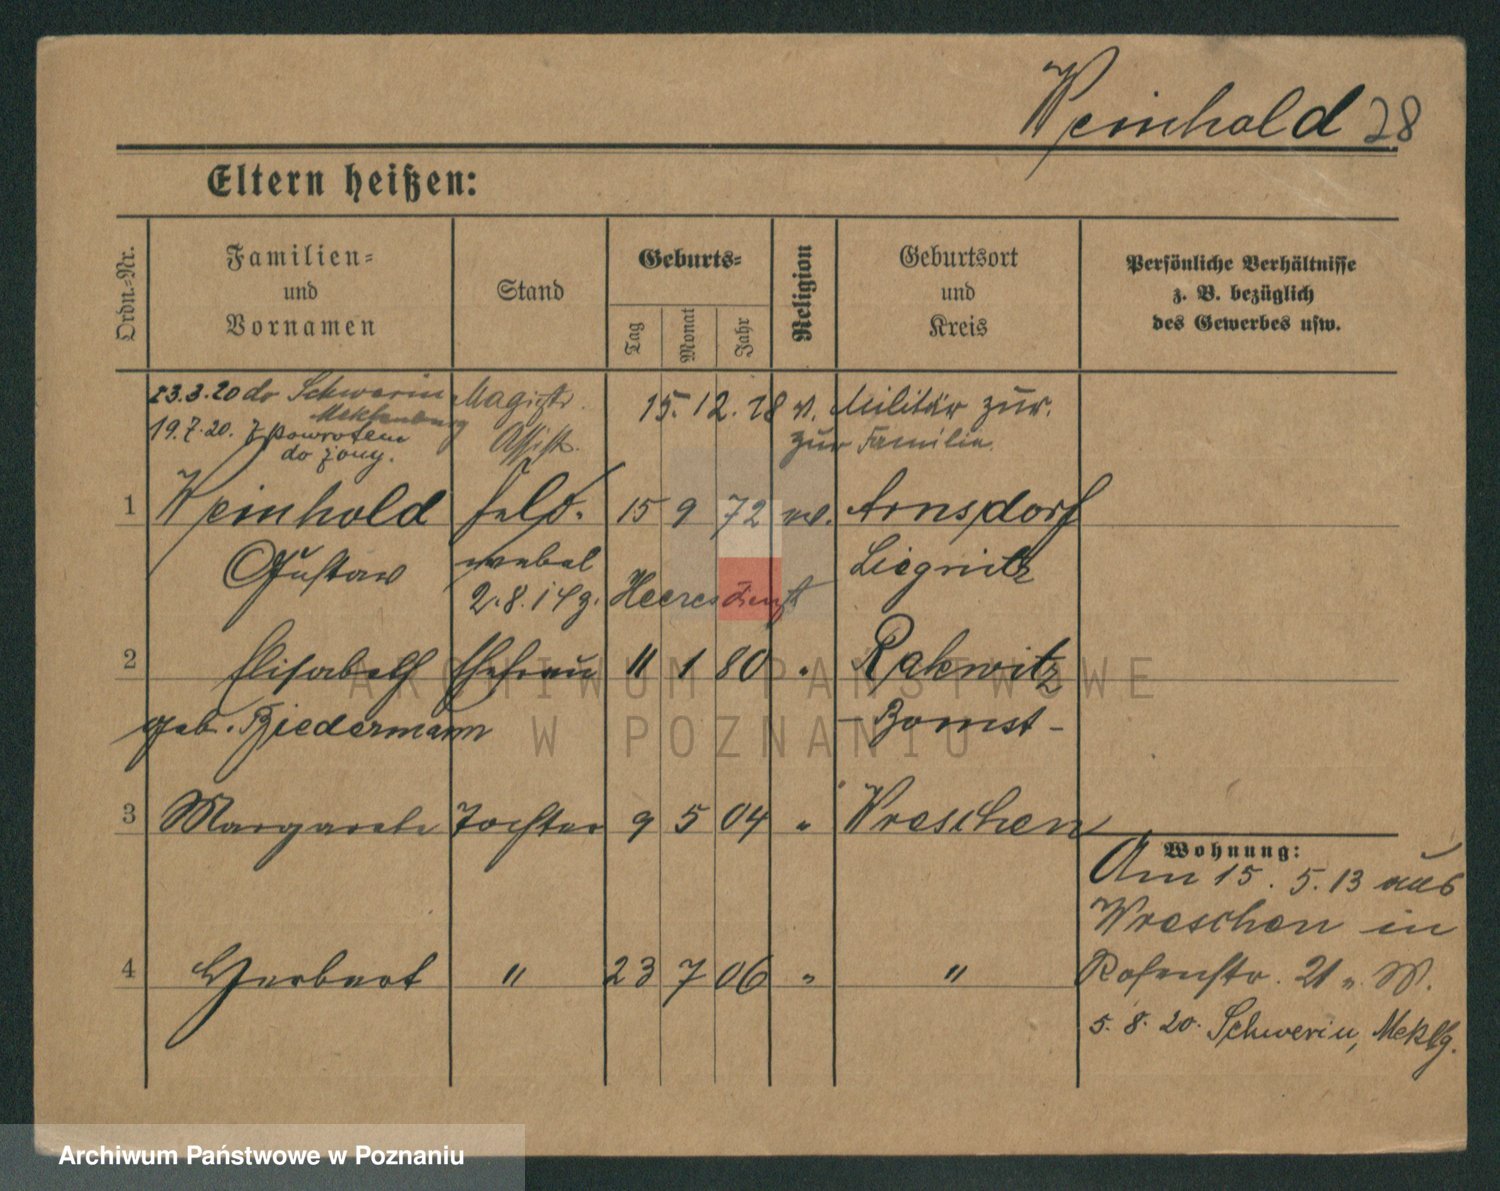 Weinhold 28
Eltern heißen:
Ordn.-Nr.
Familien-
und
Vornamen
Stand
Geburts-
Tag
Monat
Jahr
Religion
Geburtsort
und
Kreis
Persönliche Verhältnisse
z. B. bezüglich
des Gewerbes usw.
23.3.20 do Schwerin Magistr. 15. 12. 18 v. Militär zur.
Meklenburg
19.7.20. z powrotem Assist. zur Familie.
do żony.
1 Weinhold Feld- 15 9 72 ev. Arnsdorf
Gustav webel Liegnitz
2.8.14 z. Heeresdienst
2 Elisabeth Ehefrau 11 1 80 " Rakwitz
geb. Biedermann - Bomst -
3 Margarete Tochter 9 5 04 " Wreschen
Wohnung:
Am 15. 5. 13 aus
Wreschen in
4 Herbert " 23 7 06 " " Rosenstr. 21 W.
5. 8. 20. Schwerin, Meklbg.
ARCHIWUM PAŃSTWOWE
W POZNANIU
Archiwum Państwowe w Poznaniu